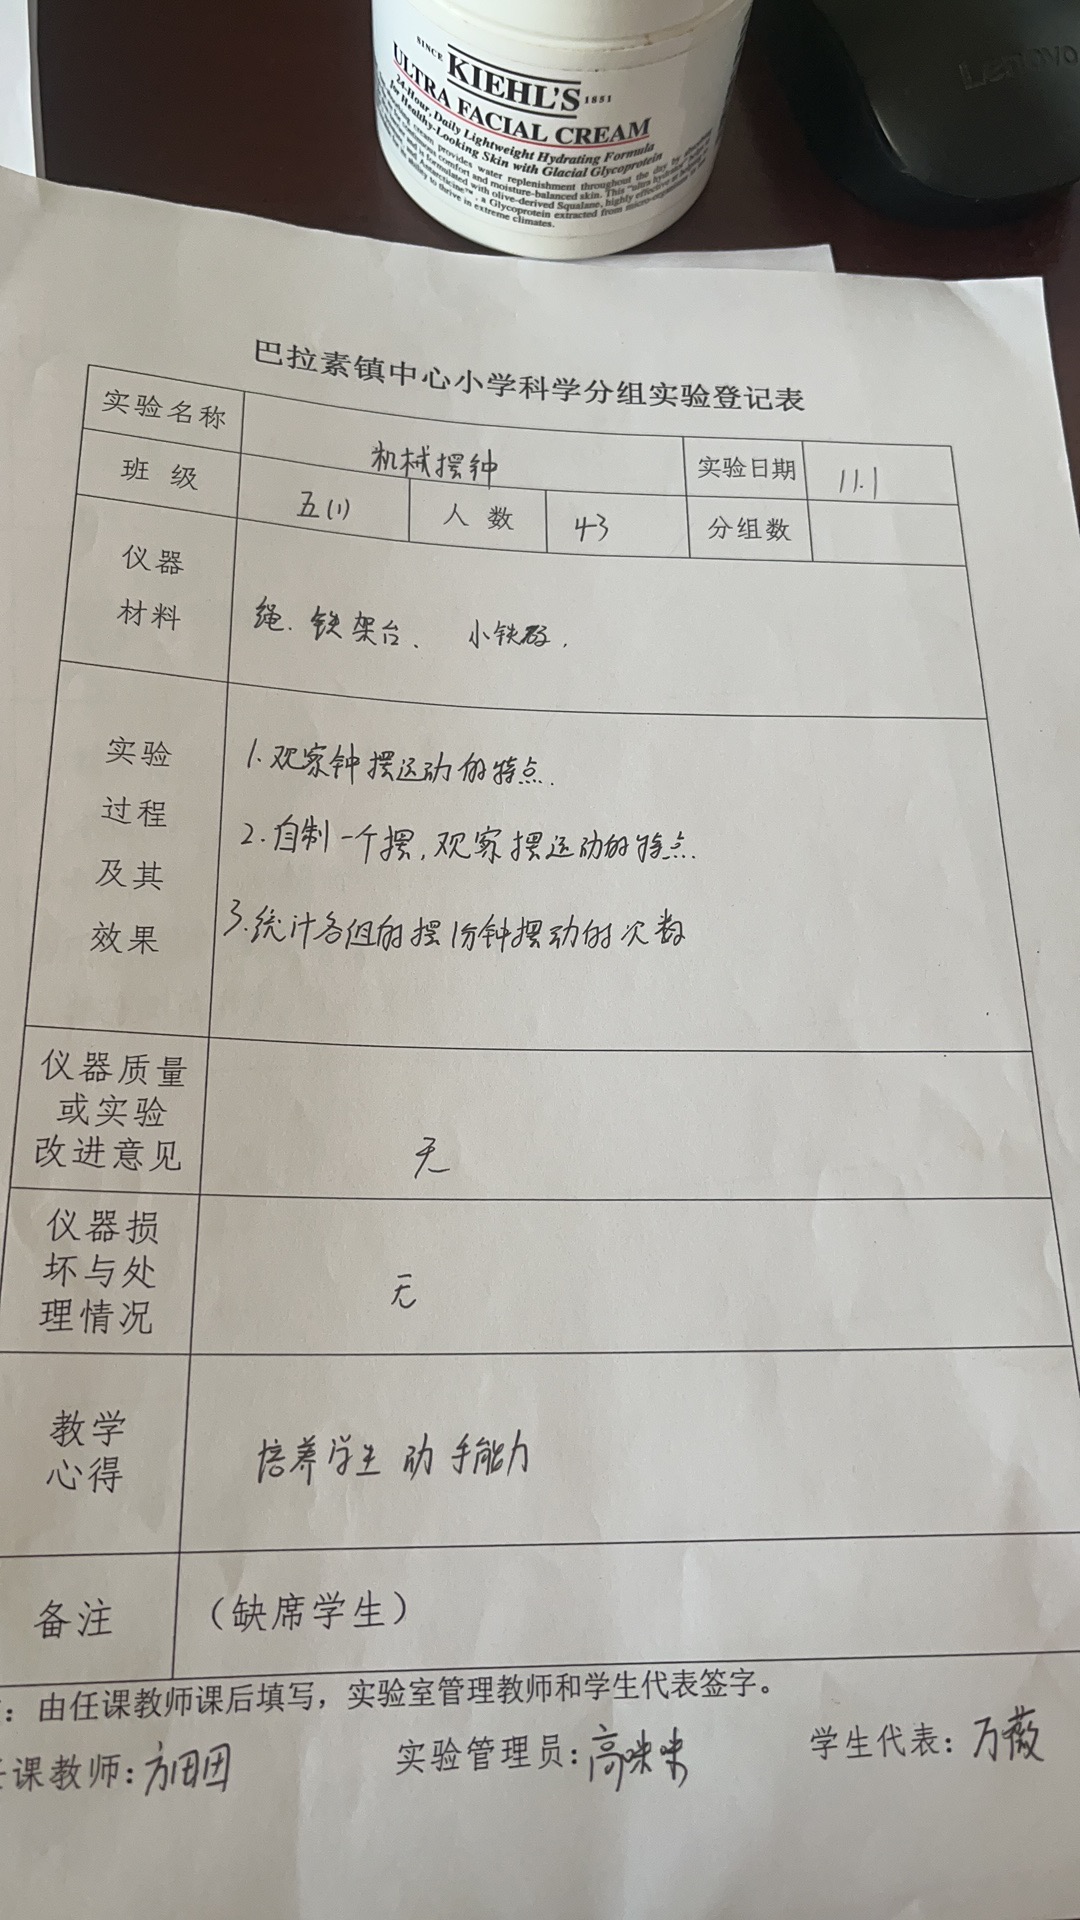 SINCE KIEHL'S 1851
ULTRA FACIAL CREAM
24-Hour, Daily Lightweight Hydrating Formula
for Healthy-Looking Skin with Glacial Glycoprotein
Lenovo
巴拉素镇中心小学科学分组实验登记表
实验名称 机械摆钟 实验日期 11.1
班 级 五(1) 人 数 43 分组数
仪器
材料
绳、铁架台、 小铁砣,
实验
过程
及其
效果
1.观察钟摆运动的特点.
2.自制一个摆,观察摆运动的特点.
3.统计各组的摆1分钟摆动的次数
仪器质量
或实验
改进意见
无
仪器损
坏与处
理情况
无
教学
心得
培养学生动手能力
备注 (缺席学生)
:由任课教师课后填写,实验室管理教师和学生代表签字。
任课教师: 实验管理员:高咪咪 学生代表:万薇